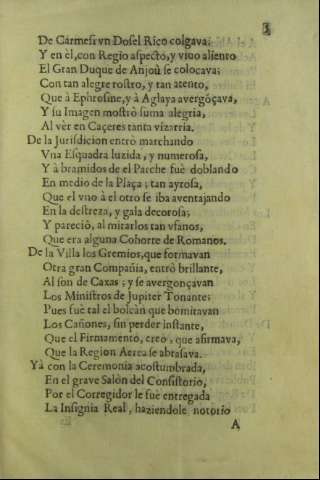 3
De Carmesi vn Dosel Rico colgava;
Y en èl, con Regio aspecto, y vivo aliento
El Gran Duque de Anjoù se colocava;
Con tan alegre rostro, y tan atento,
Que à Ephrosine, y à Aglaya avergõçava,
Y su Imagen mostrò suma alegria,
Al vèr en Caçeres tanta vizarria.
De la Jurisdicion entrò marchando
Vna Esquadra luzida, y numerosa,
Y à bramidos de el Parche fuè doblando
En medio de la Plaça; tan ayrosa,
Que el vno à el otro se iba aventajando
En la destreza, y gala decorosa;
Y pareciò, al mirarlos tan vfanos,
Que era alguna Cohorte de Romanos.
De la Villa los Gremios, que formavan
Otra gran Compañia, entrò brillante,
Al son de Caxas; y se avergonçavan
Los Ministros de Jupiter Tonante;
Pues fuè tal el bolcàn que bomitavan
Los Cañones, sin perder instante,
Que el Firmamento, creo, que afirmava,
Que la Region Aerea se abrasava.
Yà con la Ceremonia acostumbrada,
En el grave Salòn del Consistorio,
Por el Corregidor le fuè entregada
La Insignia Real, haziendole notorio
A